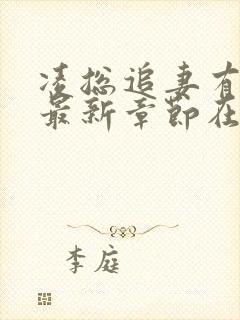 凌总追妻有
最新章节在
李庭